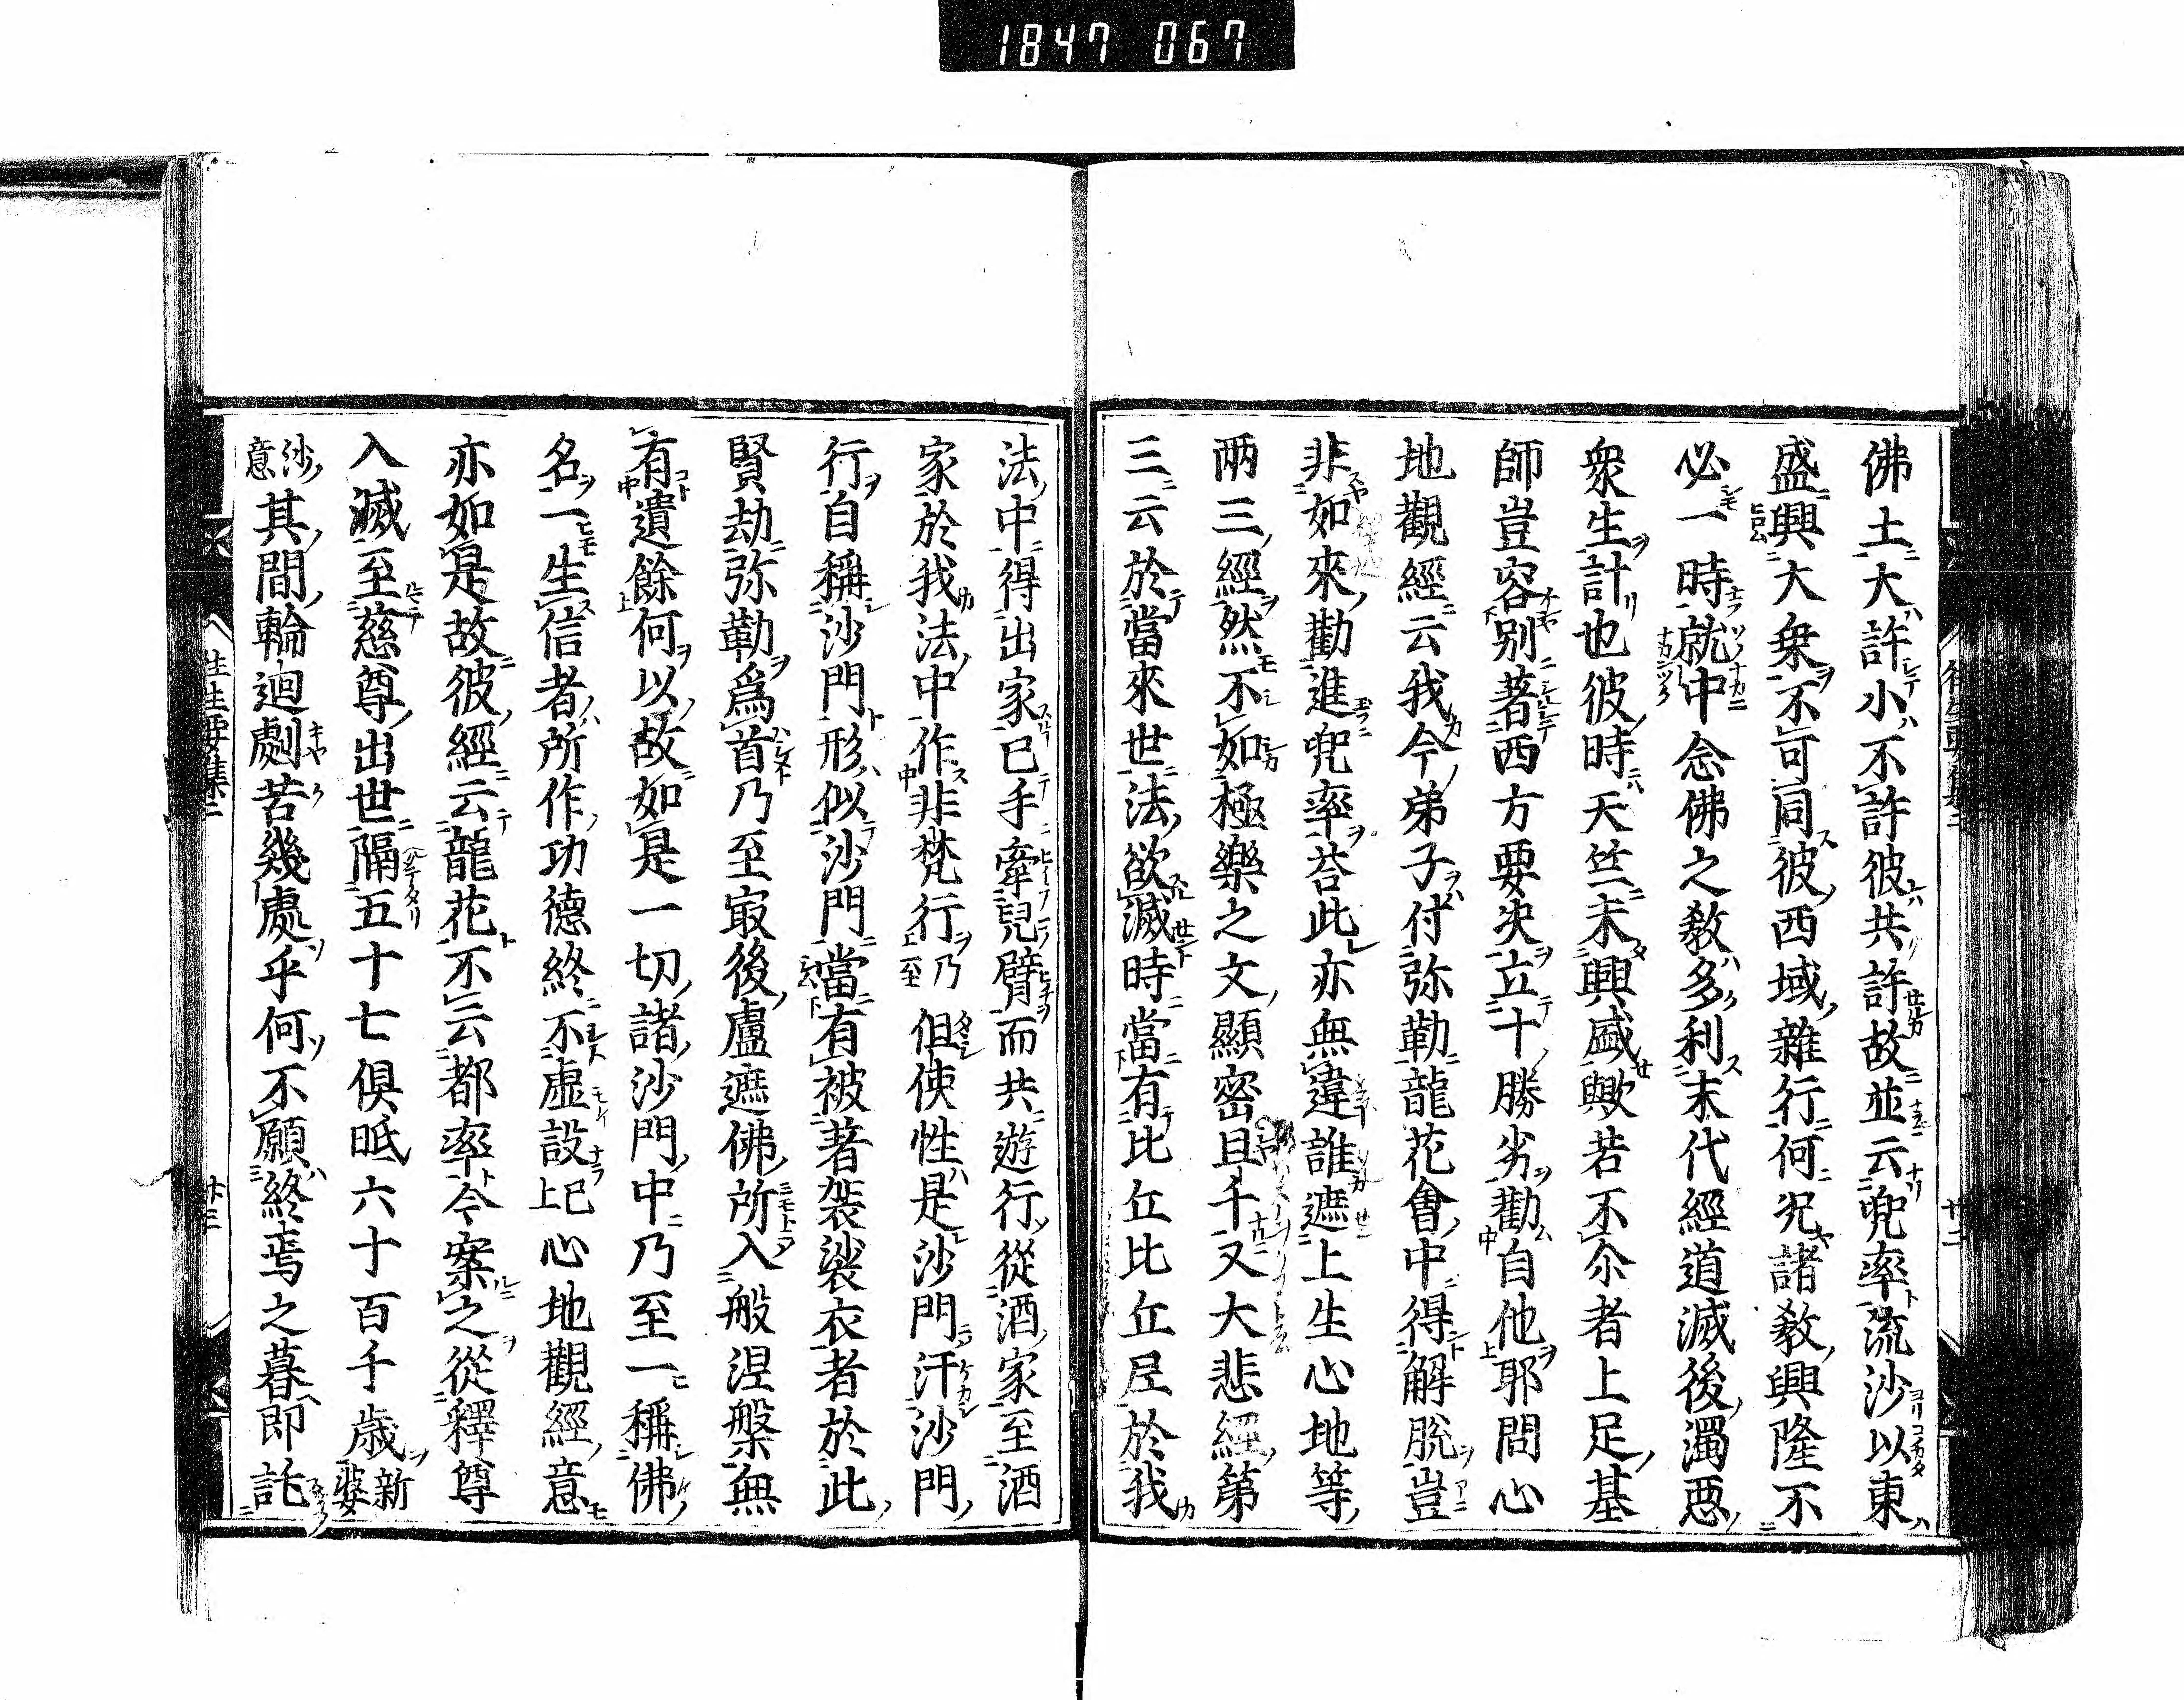 1847 067
佛土大許小不許彼共許故並云兜率流沙以東
盛興大乗不可同彼西域雜行何況諸教興隆不
必一時就中念佛之教多利末代經道滅後濁惡
衆生計也彼時天竺未興盛歟若不尒者上足基
師豈容別著西方要決立十勝劣勸自他耶問心
地觀經云我今弟子付弥勒龍花會中得解脱豈
非如來勸進兜率荅此亦無違誰遮上生心地等
兩三經然不如極樂之文顯密且千又大悲經第
三云於當來世法欲滅時當有比丘比丘尼於我
法中得出家已手牽兒臂而共遊行從酒家至酒
家於我法中作非梵行乃至但使性是沙門汗沙門
行自稱沙門形似沙門當有被著袈裟衣者於此
賢劫弥勒爲首乃至冣後盧遮佛所入般涅槃無
有遺餘何以故如是一切諸沙門中乃至一稱佛
名一生信者所作功德終不虚設已上心地觀經意
亦如是故彼經云龍花不云都率今案之從釋尊
入滅至慈尊出世隔五十七倶胝六十百千歳新婆
沙意其間輪迴劇苦幾處乎何不願終焉之暮即託
往生要集二
廿三